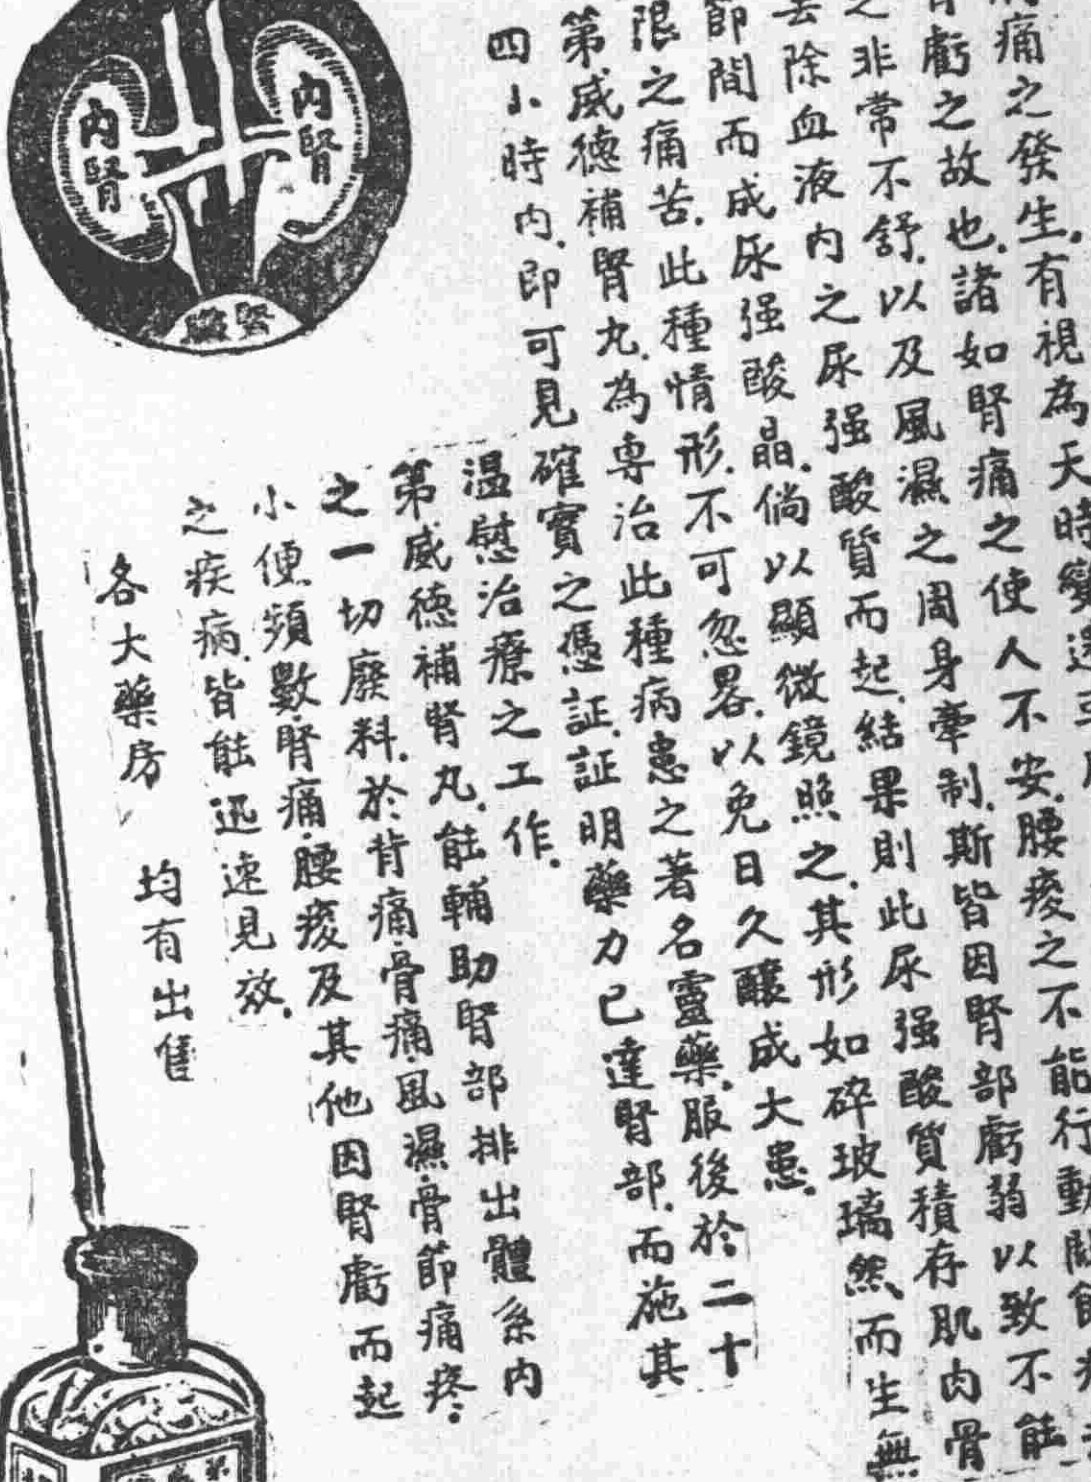 痛之發生.有視為天時變
虧之故也.諸如腎痛之使人不安.腰痠之不能行動
之非常不舒.以及風濕之周身牽制.斯皆因腎部虧弱以致不能
去除血液內之尿强酸質而起.結果則此尿强酸質積存肌肉骨
節間而成尿强酸晶.倘以顯微鏡照之.其形如碎玻璃然.而生無
限之痛苦.此種情形.不可忽畧.以免日久釀成大患.
第威德補腎丸.為專治此種病患之著名靈藥.服後於二十
四小時內.即可見確實之憑証.証明藥力已達腎部.而施其
溫慰治療之工作.
第威德補腎丸.能輔助腎部排出體系內
之一切廢料.於背痛.骨痛.風濕.骨節痛疼.
小便頻數.腎痛.腰痠及其他因腎虧而起
之疾病.皆能迅速見效.
各大藥房 均有出售
內腎
內腎